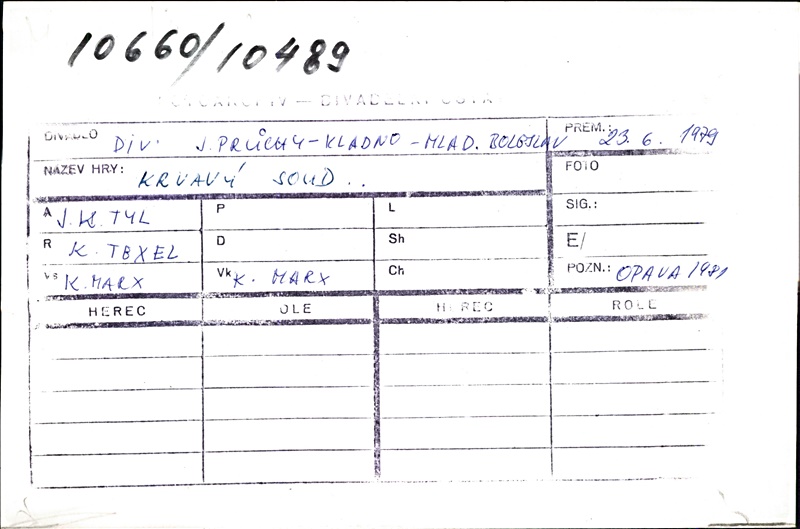 10660/10489
FOTOARCHIV — DIVADELNÍ ÚSTA
DIVADLO DIV. J. PRŮCHY - KLADNO - MLAD. BOLESLAV PREM.: 23. 6. 1979
NÁZEV HRY: KRVAVÝ SOUD .. FOTO
A J. K. TYL P L SIG.:
R K. TEXEL D Sh E/
Vs K. MARX Vk K. MARX Ch POZN.: OPAVA 1981
HEREC OLE HEREC ROLE